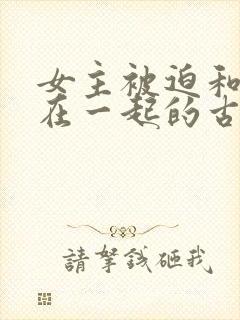 女主被迫和
在一起的古
請拏錢砸我